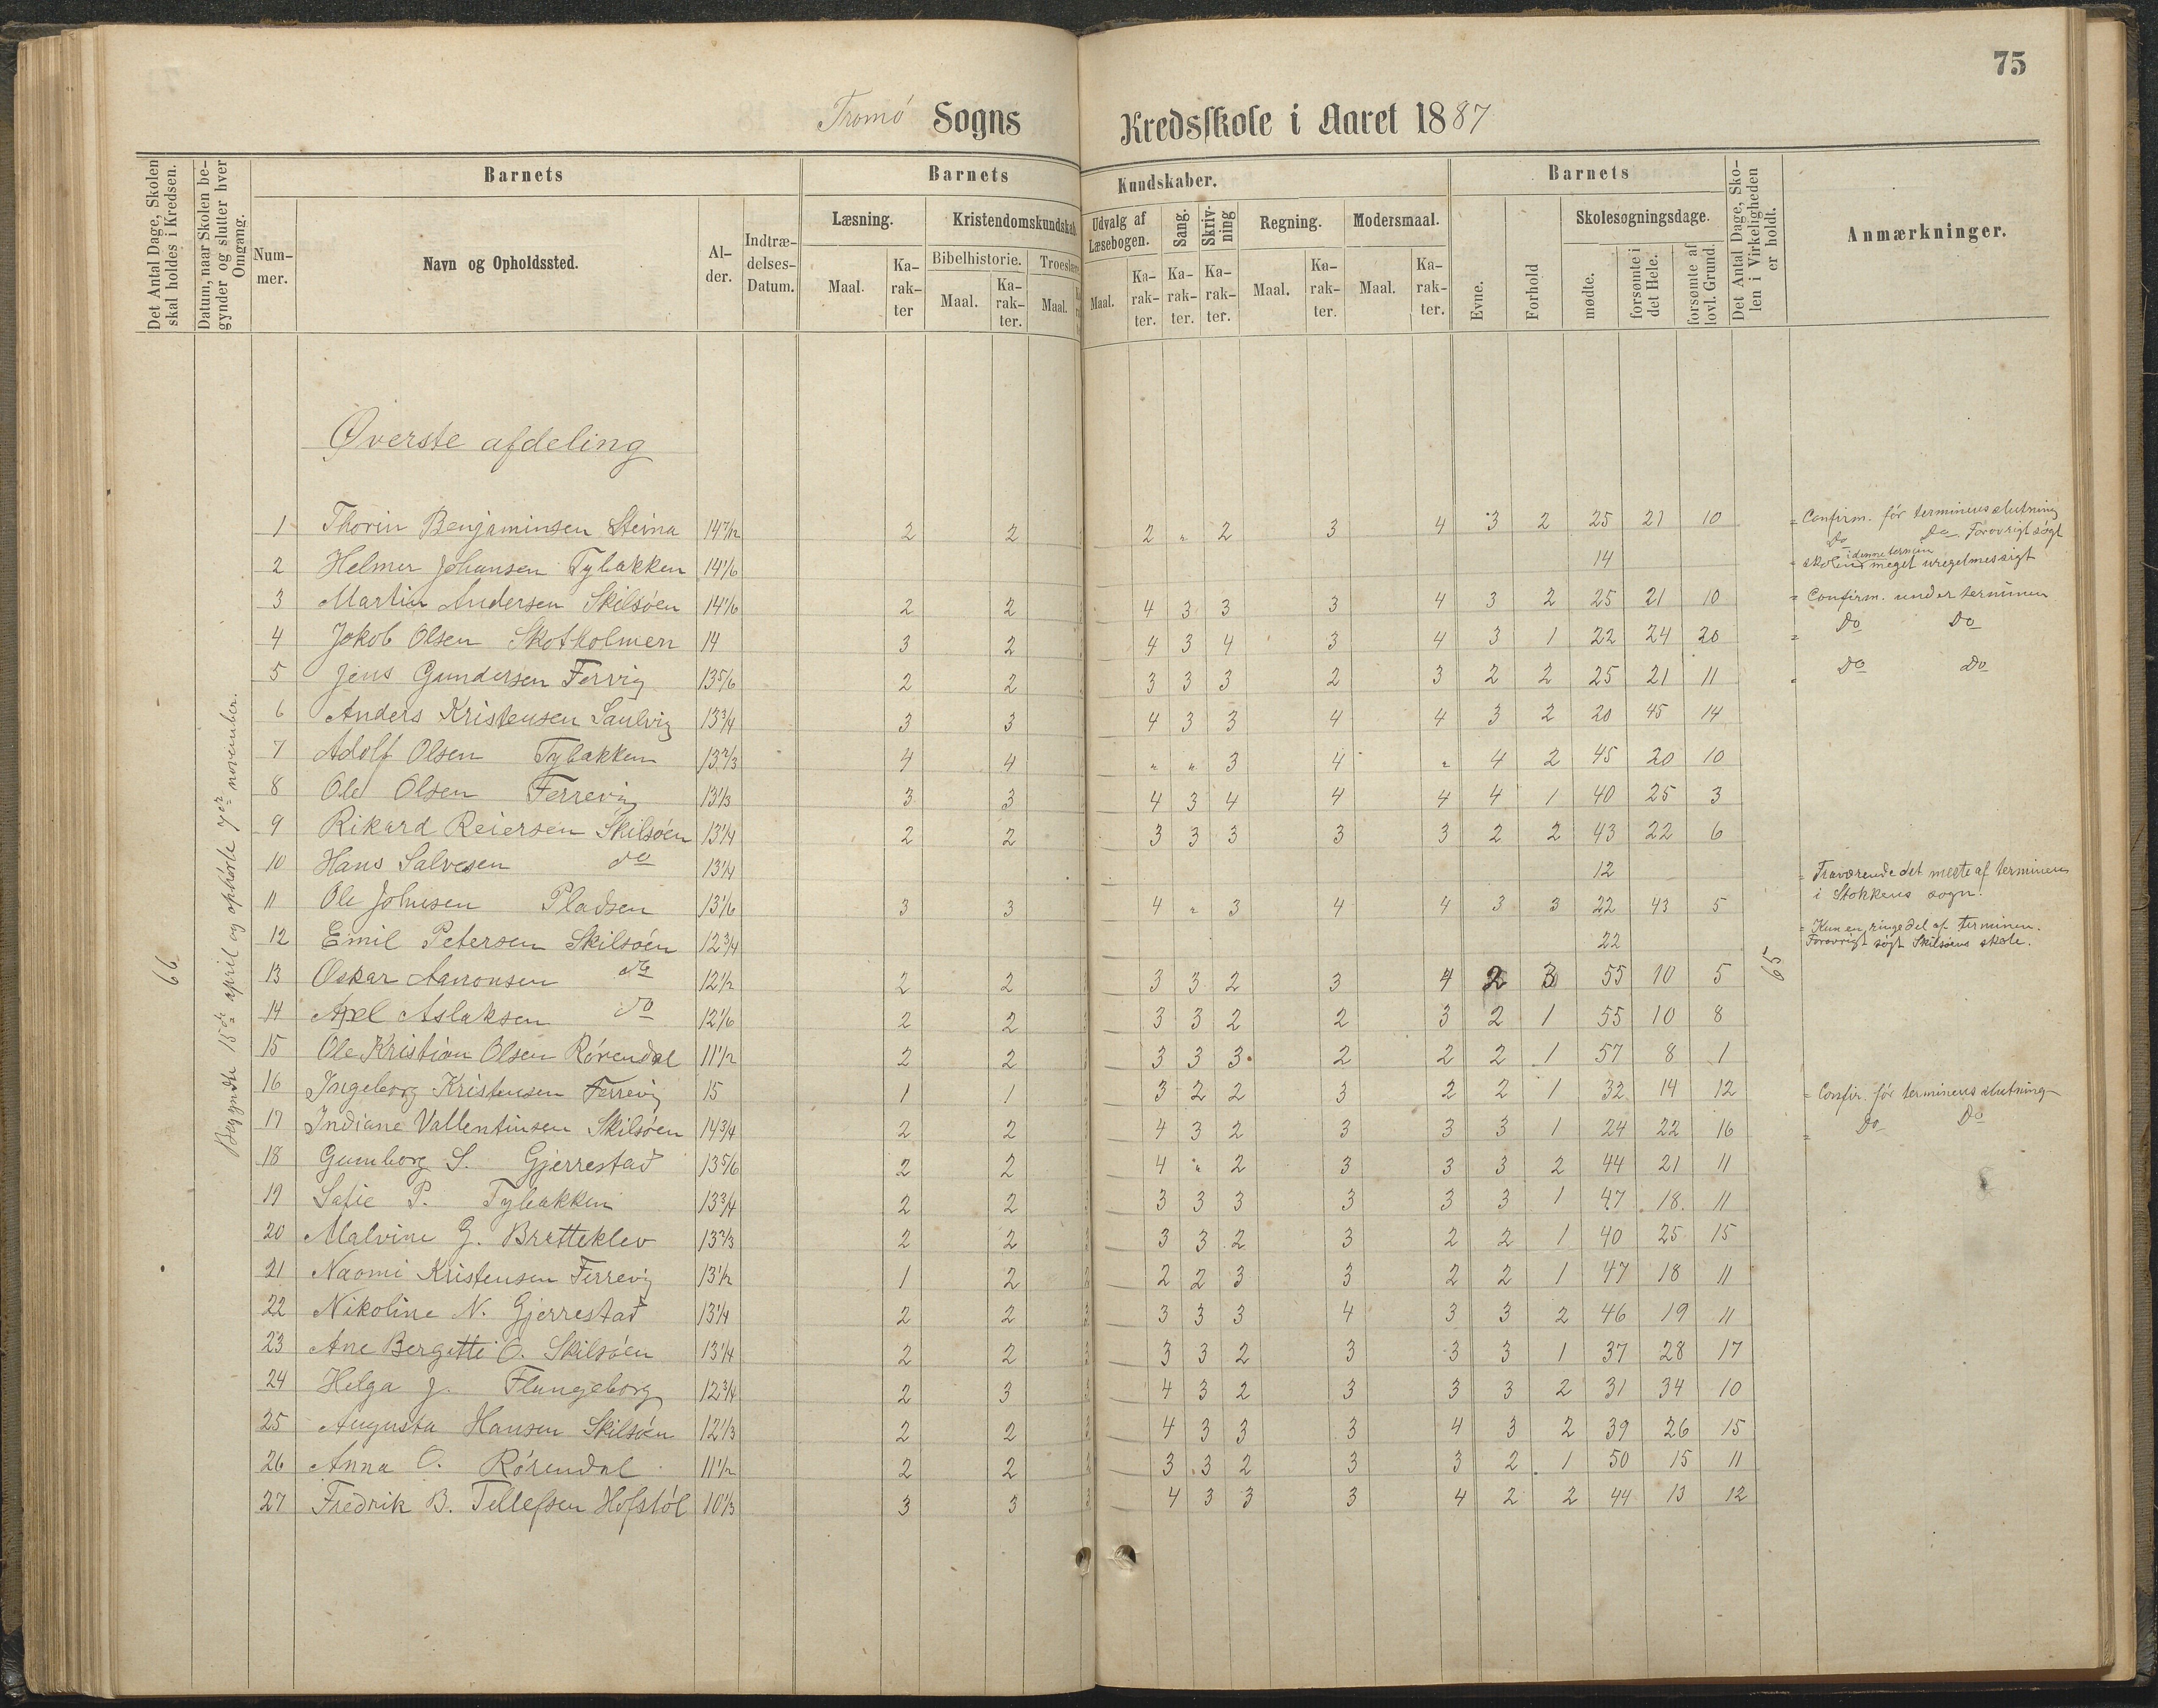 75
Tromö Sogns Kredsskole i Aaret 1887
Det Antal Dage, Skolen skal holdes i Kredsen.
Datum, naar Skolen begynder og slutter hver Omgang.
Barnets
Nummer.
Navn og Opholdssted.
Alder.
Indtrædelses-Datum.
Barnets Kundskaber.
Læsning.
Maal.
Karakter
Kristendomskundskab
Bibelhistorie.
Maal.
Karakter.
Troeslære
Maal.
Udvalg af Læsebogen.
Maal.
Karakter.
Sang.
Karakter.
Skrivning
Karakter.
Regning.
Maal.
Karakter.
Modersmaal.
Maal.
Karakter.
Barnets
Evne.
Forhold
Skolesøgningsdage.
mødte.
forsømte i det Hele.
forsømte af lovl. Grund.
Det Antal Dage, Skolen i Virkeligheden er holdt.
Anmærkninger.
66
Begyndte 18de april og ophørte 7de november.
65
Øverste afdeling
1 Thorin Benjaminsen Steina 14 7/12 2 2 2 " 2 3 4 3 2 25 21 10 = Confirm. før terminens slutning
2 Helmer Johansen Tybakken 14 1/6 14 Do Do. Forøvrigt søgt
= skolen i denne termin meget uregelmessigt
3 Martin Andersen Skilsøen 14 1/6 2 2 4 3 3 3 4 3 2 25 21 10 = Confirm. under terminen
4 Jokob Olsen Skotholmen 14 3 2 4 3 4 3 4 3 1 22 24 20 = Do Do
5 Jens Gundersen Fervig 13 5/6 2 2 3 3 3 2 3 2 2 25 21 11 = Do Do
6 Anders Kristensen Saulvig 13 3/4 3 3 4 3 3 4 4 3 2 20 45 14
7 Adolf Olsen Tybakken 13 2/3 4 4 " " 3 4 " 4 2 45 20 10
8 Ole Olsen Ferrevig 13 1/3 3 3 4 3 4 4 4 4 1 40 25 3
9 Rikard Reiersen Skilsøen 13 1/4 2 2 3 3 3 3 3 2 2 43 22 6
10 Hans Salvesen do 13 1/4 12 = Fraværende det meste af terminen
i Stokkens sogn.
11 Ole Johnsen Pladsen 13 1/6 3 3 4 " 3 4 4 3 3 22 43 5
12 Emil Petersen Skilsøen 12 3/4 22 = Kun en ringe del af terminen.
Forøvrigt søgt Skilsøens skole.
13 Oskar Aanonsen do 12 1/2 2 2 3 3 2 3 4 2 3 55 10 5
14 Axel Aslaksen do 12 1/6 2 2 3 3 2 2 3 2 1 55 10 8
15 Ole Kristian Olsen Rörendal 11 1/2 2 2 3 3 3 2 2 2 1 57 8 1
16 Ingeborg Kristensen Ferrevig 15 1 1 3 2 2 3 2 2 1 32 14 12 = Confir. før terminens slutning
17 Indiane Vallentinsen Skilsøen 14 3/4 2 2 4 3 2 3 3 3 1 24 22 16 = Do Do
18 Gumborg S. Gjerrestad 13 5/6 2 2 4 " 2 3 3 3 2 44 21 11
19 Sofie P. Tybakken 13 3/4 2 2 3 3 3 3 3 3 1 47 18 11
20 Malvine G. Bretteklev 13 2/3 2 2 3 3 2 3 2 2 1 40 25 15
21 Naomi Kristensen Ferrevig 13 1/2 1 2 2 2 3 3 2 2 1 47 18 11
22 Nikoline N. Gjerrestad 13 1/4 2 2 3 3 3 4 3 3 2 46 19 11
23 Ane Bergitte O. Skilsøen 13 1/4 2 2 3 3 2 3 3 3 1 37 28 17
24 Helga J. Flangeborg 12 3/4 2 3 4 3 2 3 3 3 2 31 34 10
25 Augusta Hansen Skilsøen 12 1/3 2 2 4 3 3 3 4 3 2 39 26 15
26 Anna O. Rörendal 11 1/2 2 2 3 3 2 3 3 2 1 50 15 11
27 Fredrik B. Tellefsen Hofstöl 10 1/3 3 3 4 3 3 3 4 2 2 44 13 12